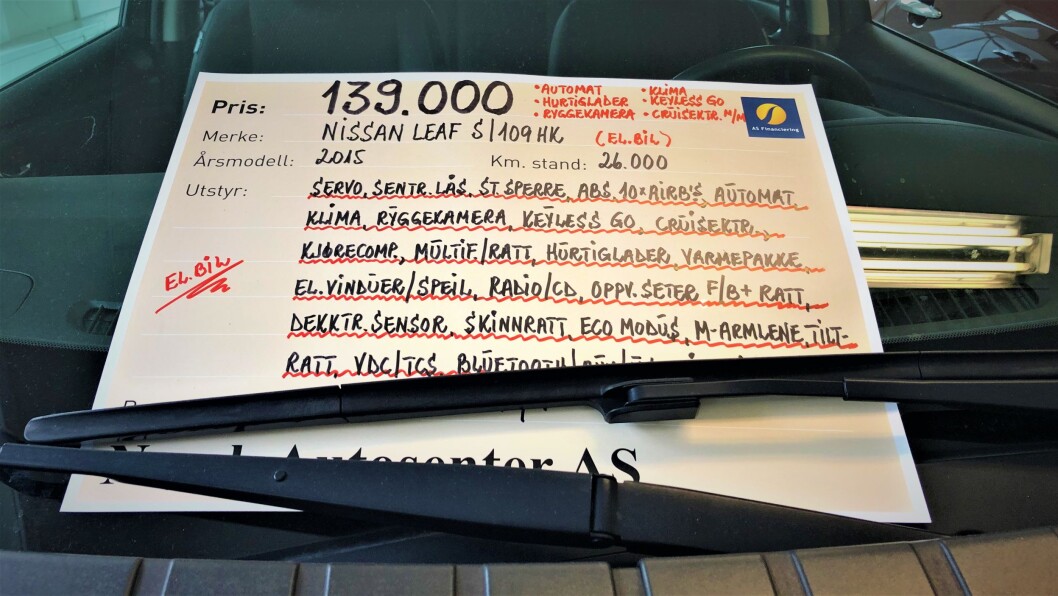 Pris: 139.000
• AUTOMAT • KLIMA
• HURTIGLADER • KEYLESS GO
• RYGGEKAMERA • CRUISEKTR. M/M
AS Financiering
Merke: NISSAN LEAF S/109 HK (EL.BIL)
Årsmodell: 2015 Km. stand: 26.000
Utstyr: SERVO, SENTR.LÅS, ST.SPERRE, ABS, 10×AIRB'S, AUTOMAT,
KLIMA, RYGGEKAMERA, KEYLESS GO, CRUISEKTR.,
KJØRECOMP., MULTIF/RATT, HURTIGLADER, VARMEPAKKE,
EL.BIL
EL.VINDUER/SPEIL, RADIO/CD, OPPV.SETER F/B+ RATT,
DEKKTR.SENSOR, SKINNRATT, ECO MODUS, M-ARMLENE, TILT-
RATT, VDC/TCS, BLUETOOTH/
Autosenter AS